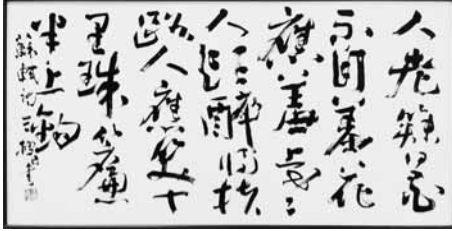 人老簪花
不自羞花
應羞上老
人頭醉歸扶
路人應笑十
里珠簾
半上鉤
蘇軾詩書